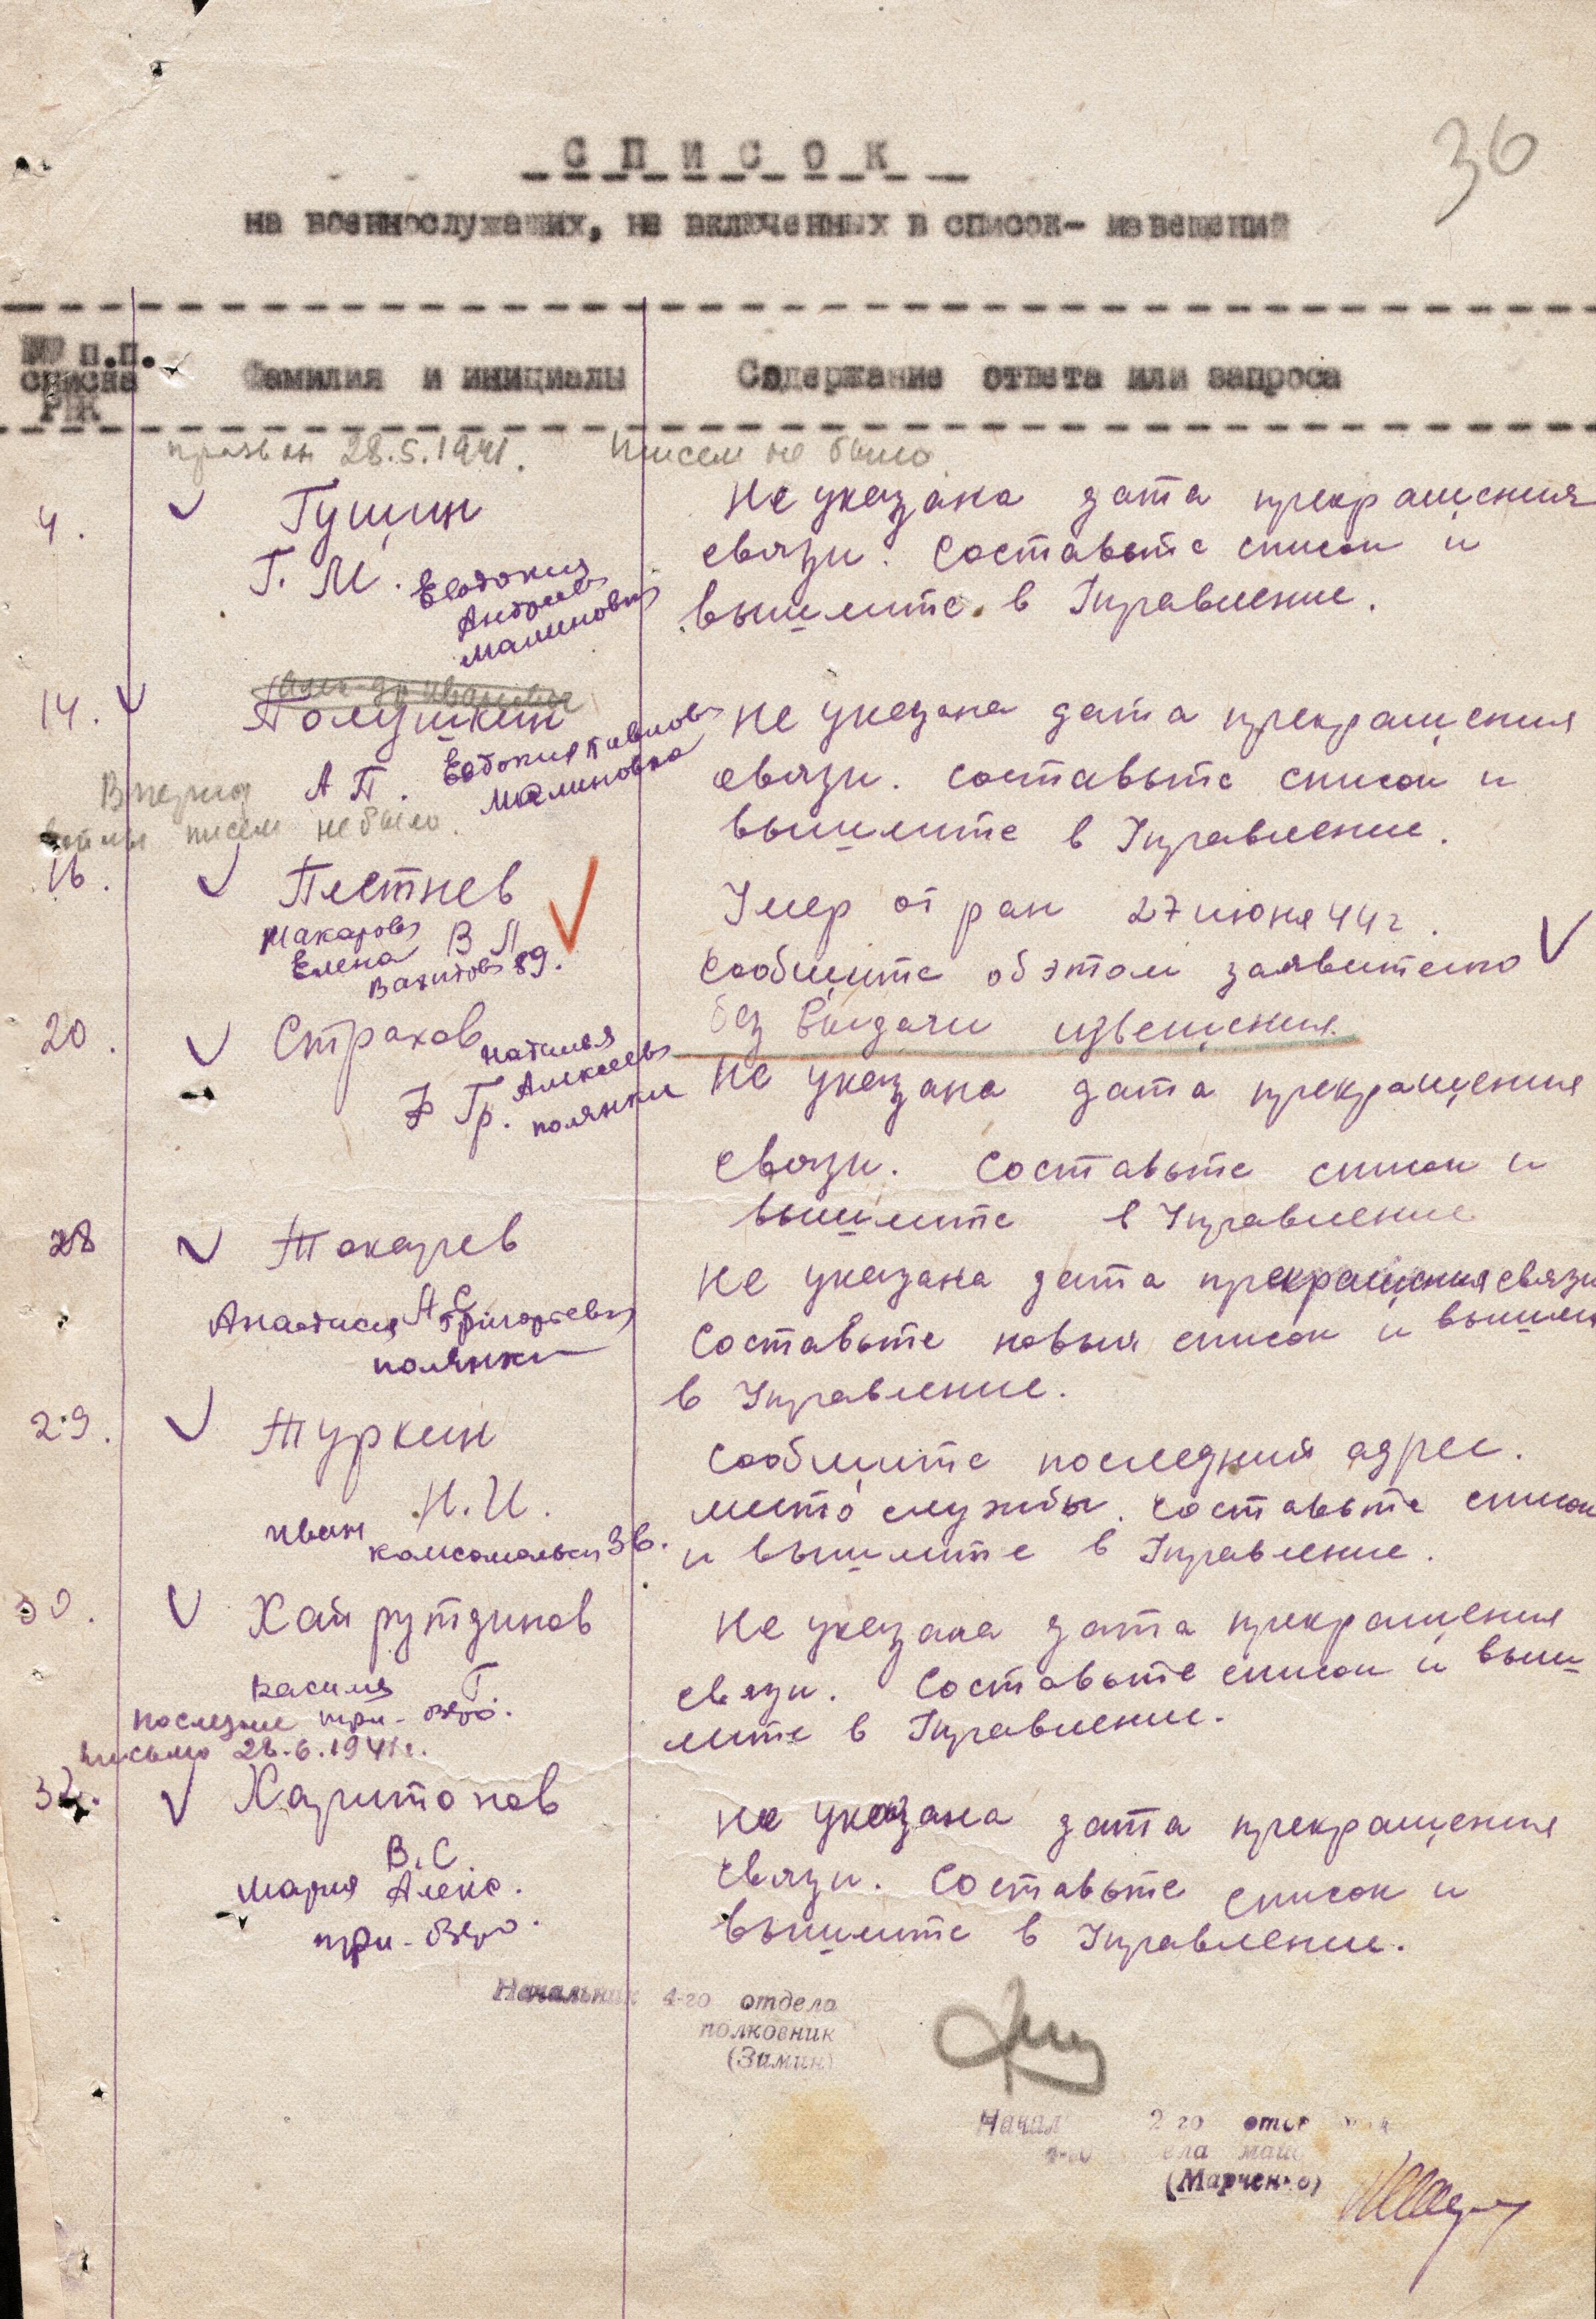 36
СПИСОК
на военнослужащих, не включенных в список- извещений
№№ п.п. списка РВК
Фамилия и инициалы
Содержание ответа или запроса
призван 28.5.1941. Писем не было.
4. Гущин
Г. М.
Евдокия
Андреев
Малиновка
Не указана дата прекращения
связи. Составьте список и
вышлите в Управление.
14. Полушкин
А П.
Евдокия Павлов
Малиновка
В период
войны писем не было.
Не указана дата прекращения
связи. Составьте список и
вышлите в Управление.
16. Плетнев
В П
Макарова
Елена
Вахитова 89.
Умер от ран 27 июня 44 г.
Сообщите об этом заявителю
без выдачи извещения.
20. Страхов
Ф Гр.
Наталья
Алексеев
Полянки
Не указана дата прекращения
связи. Составьте список и
вышлите в Управление
28 Токарев
А С
Анастасия Григорьевна
Полянки
Не указана дата прекращения связи
Составьте новый список и вышлит
в Управление.
29. Туркин
Н. И.
Иван
Комсомольск 36.
Сообщите последний адрес.
место службы. Составьте список
и вышлите в Управление.
30. Хайрутдинов
Г.
Касимя
три-озро.
последнее
письмо 28.6.1941г.
Не указана дата прекращения
связи. Составьте список и выш
лите в Управление.
32. Харитонов
В. С.
Мария Алекс.
три-озро.
Не указана дата прекращения
связи. Составьте список и
вышлите в Управление.
Начальник 4-го отдела
полковник
(Зимин)
Начал 2 го отде
ела май
(Марченко)